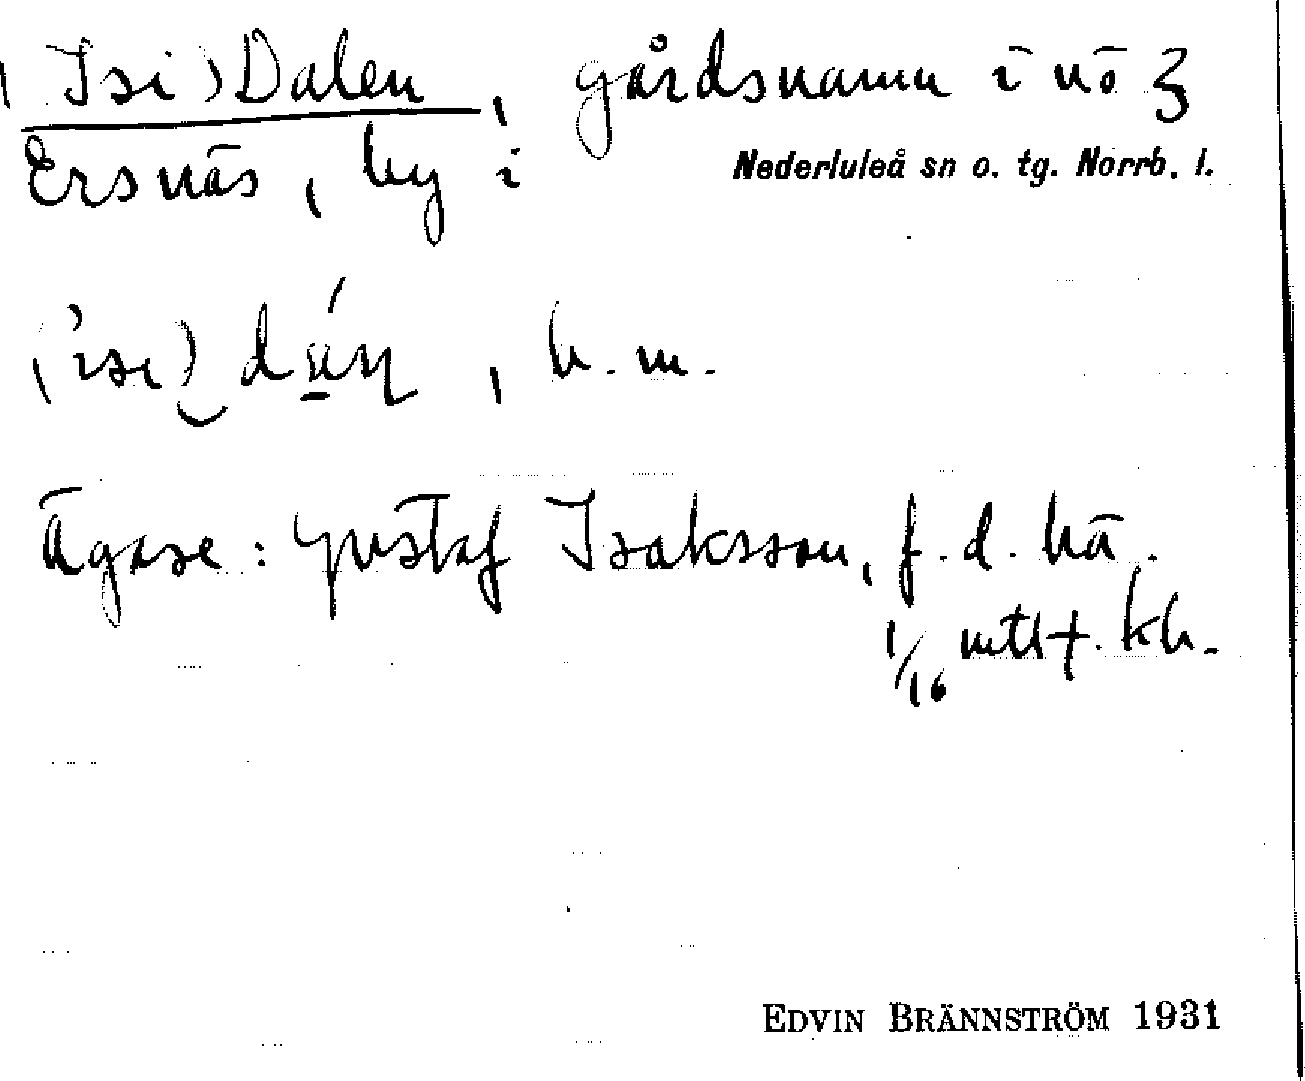 (Isi)Dalen, gårdsnamn i nö
Ersnäs, by i Nederluleå sn o. tg. Norrb. l.
, h. m.
Ägare: Gustaf Isaksson, f. d. hä.
1/16 mtl kh.
EDVIN BRÄNNSTRÖM 1931